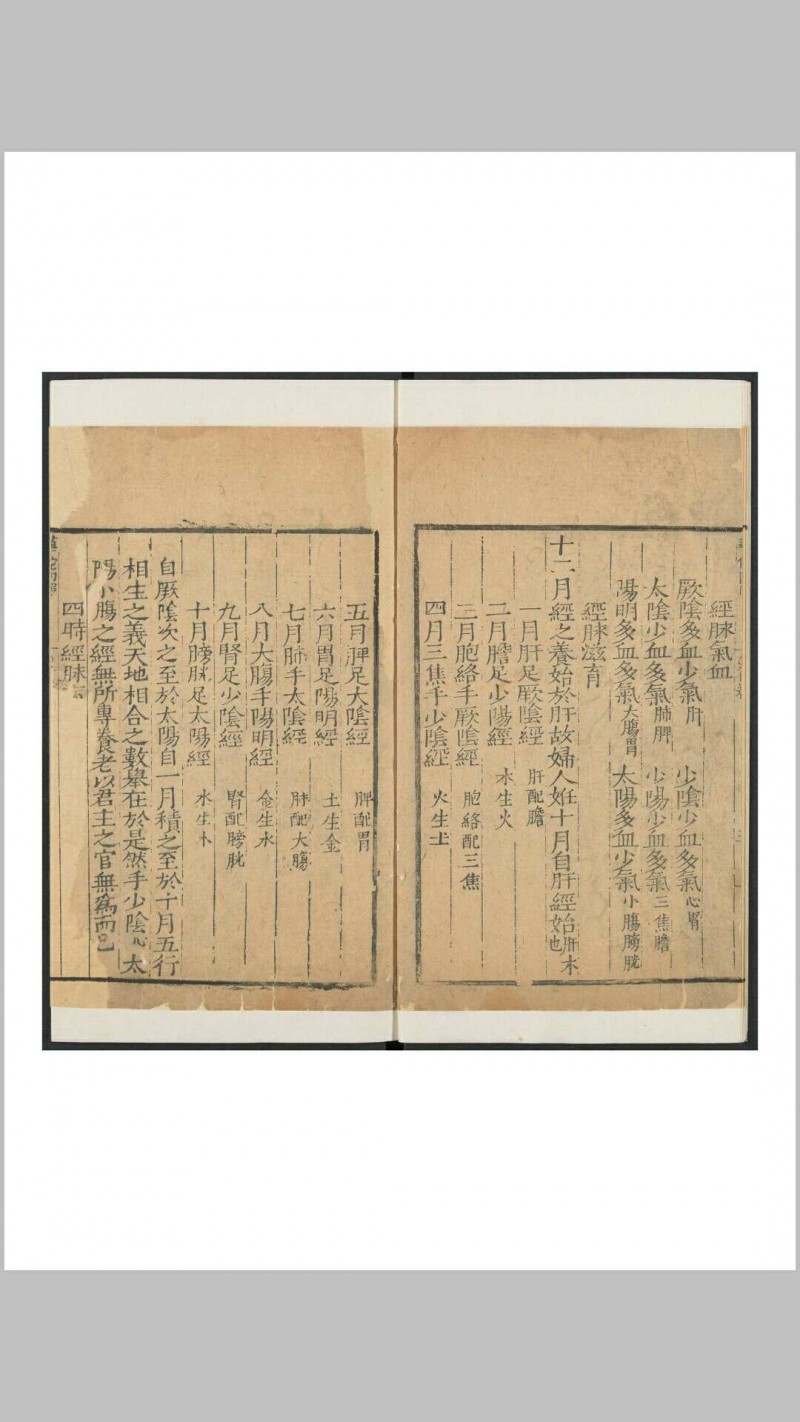 經脉氣血
厥陰多血少氣肝 少陰少血多氣心腎
太陰少血多氣肺脾 少陽少血多氣三焦膽
陽明多血多氣大腸胃 太陽多血少氣小腸膀胱
經脉滋育
十二月經之養始於肝故婦人姙十月自肝經始肝木也
一月肝足厥陰經 肝配膽
二月膽足少陽經 木生火
三月胞絡手厥陰經 胞絡配三焦
四月三焦手少陰經 火生土
五月脾足太陰經 脾配胃
六月胃足陽明經 土生金
七月肺手太陰經 肺配大腸
八月大腸手陽明經 金生水
九月腎足少陰經 腎配膀胱
十月膀胱足太陽經 水生木
自厥陰次之至於太陽自一月積之至於十月五行
相生之義天地相合之數舉在於是然手少陰心太
陽小腸之經無所專養者以君主之官無爲而已
四時經脉